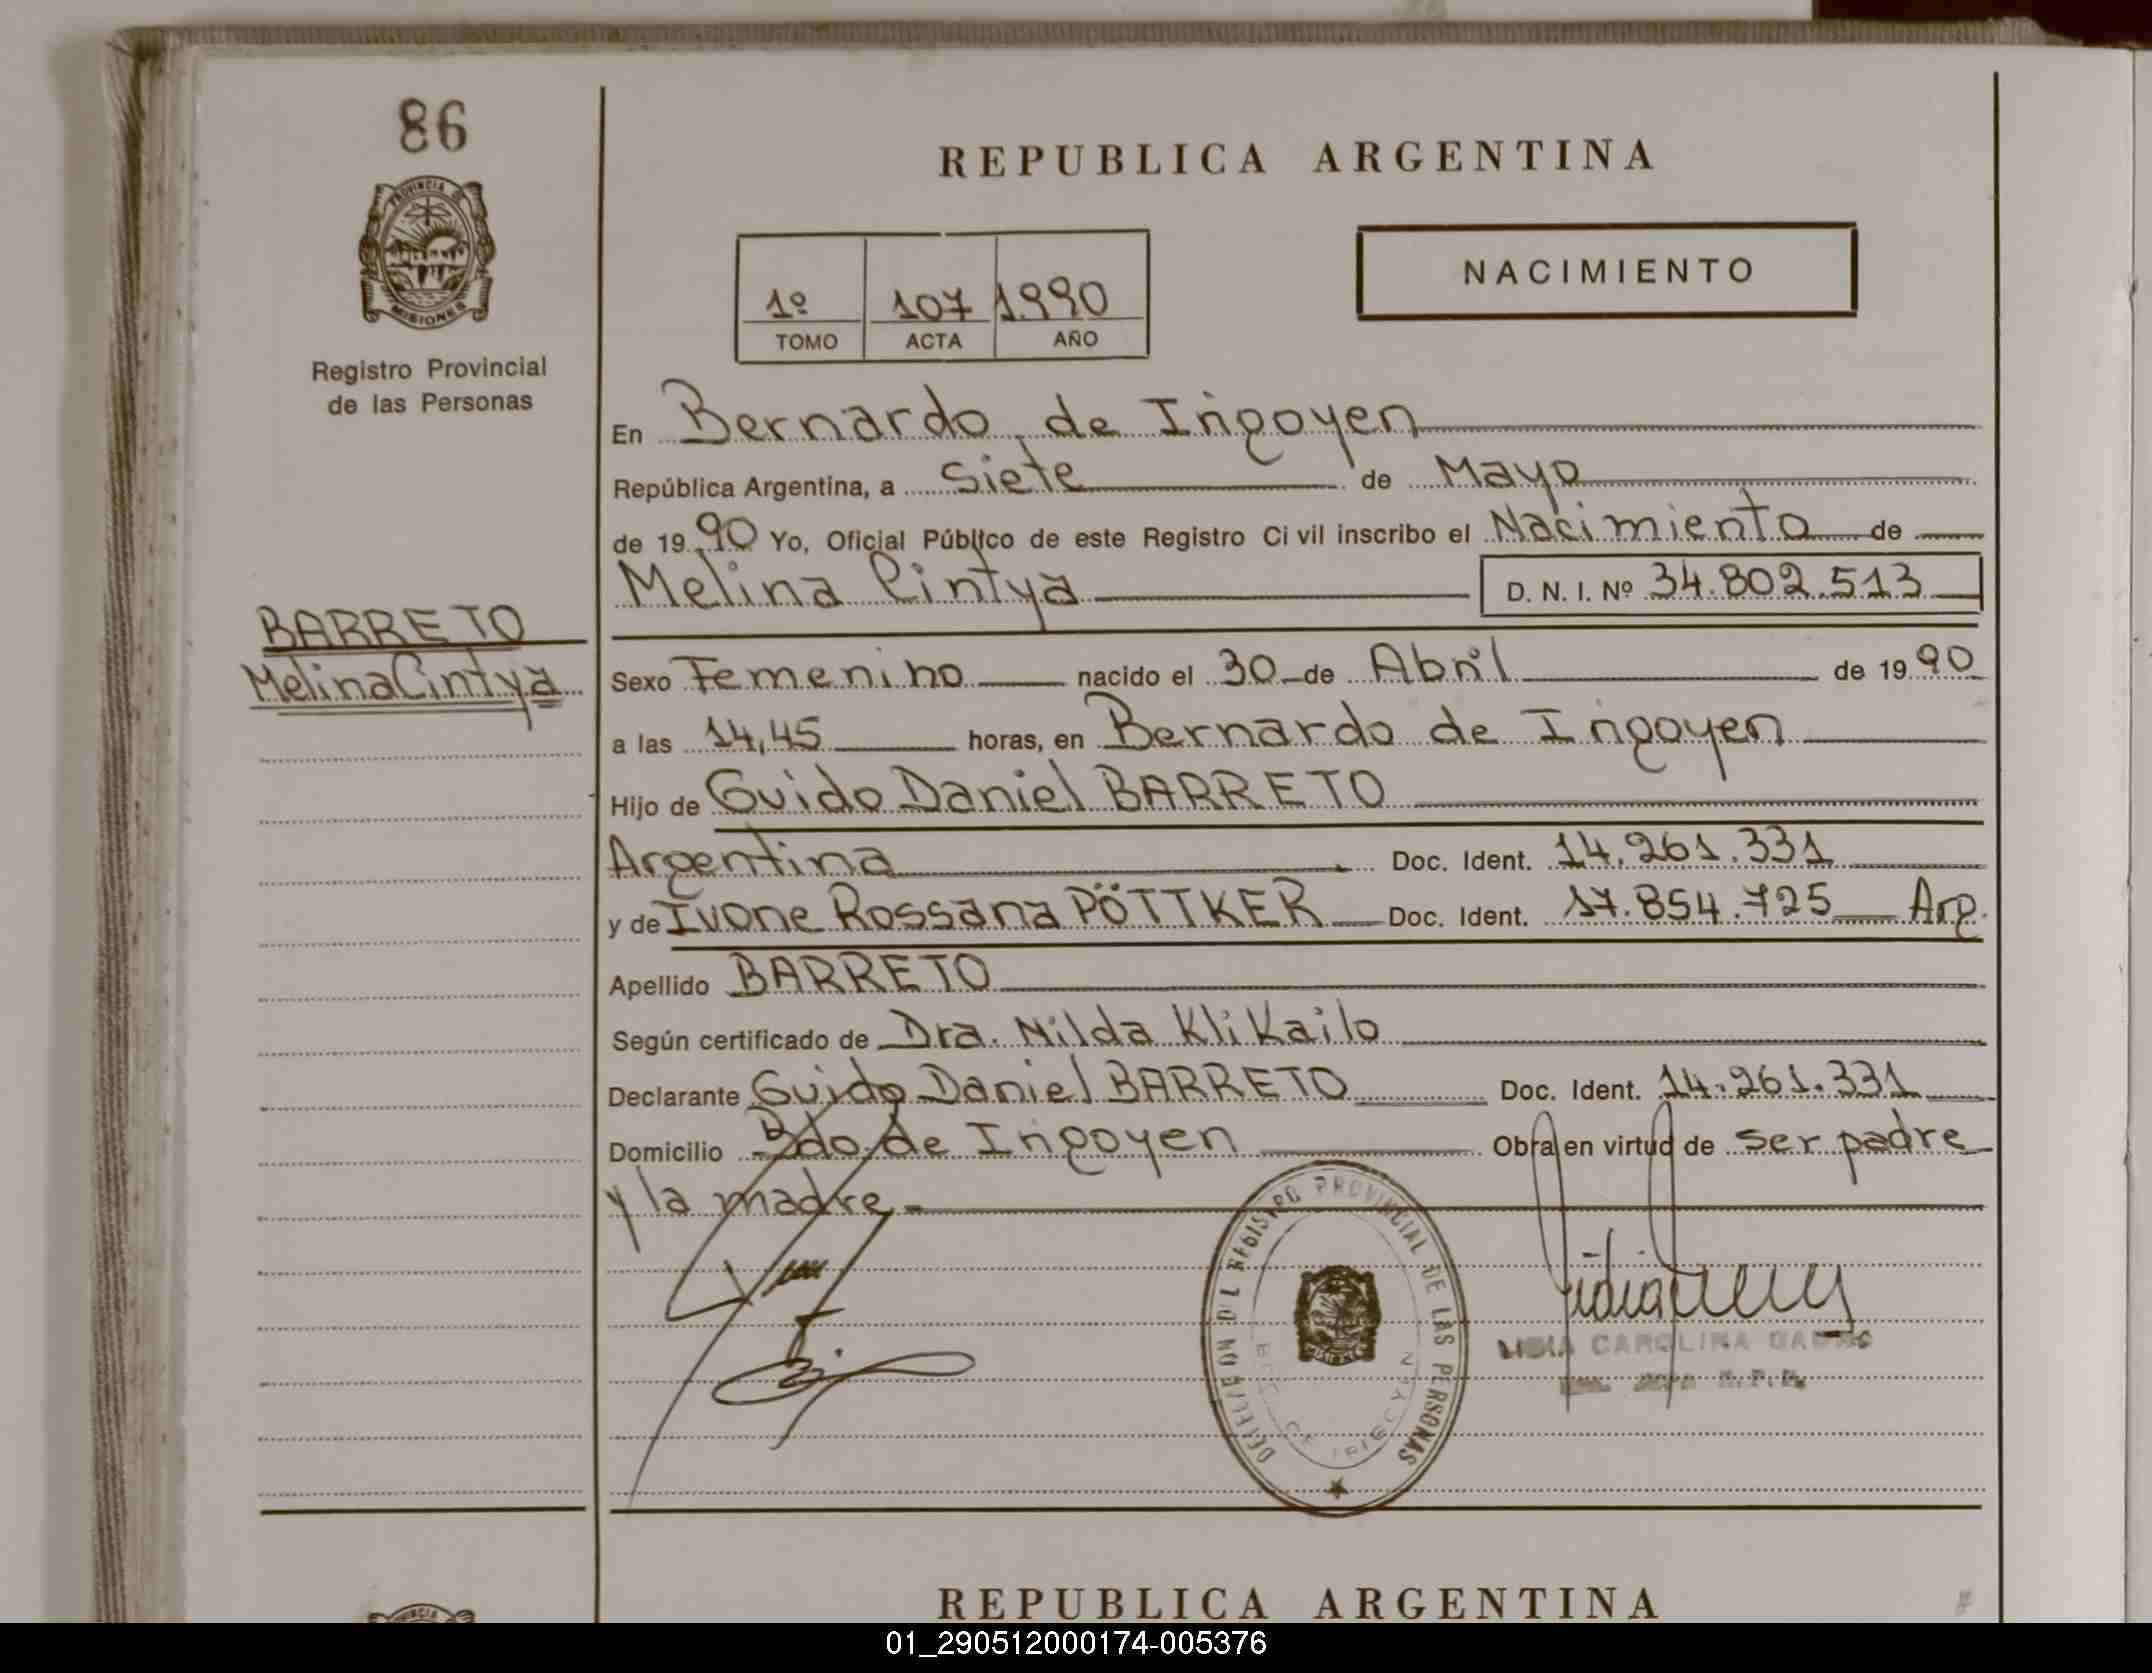 86
PROVINCIA DE
MISIONES
Registro Provincial
de las Personas
BARRETO
Melina Cintya
REPUBLICA ARGENTINA
NACIMIENTO
1º 107 1.990
TOMO ACTA AÑO
En Bernardo de Irigoyen
República Argentina, a Siete de Mayo
de 1990 Yo, Oficial Público de este Registro Civil inscribo el Nacimiento de
Melina Cintya D. N. I. Nº 34.802.513
Sexo Femenino nacido el 30 de Abril de 1990
a las 14,45 horas, en Bernardo de Irigoyen
Hijo de Guido Daniel BARRETO
Argentina Doc. Ident. 14.261.331
y de Ivone Rossana PÖTTKER Doc. Ident. 17.854.725 Arg.
Apellido BARRETO
Según certificado de Dra. Nilda Klikailo
Declarante Guido Daniel BARRETO Doc. Ident. 14.261.331
Domicilio Bdo. de Irigoyen Obra en virtud de ser padre
y la madre.-
REGISTRO PROVINCIAL DE LAS PERSONAS
MISIONES
LIDIA CAROLINA
REPUBLICA ARGENTINA
01_290512000174-005376